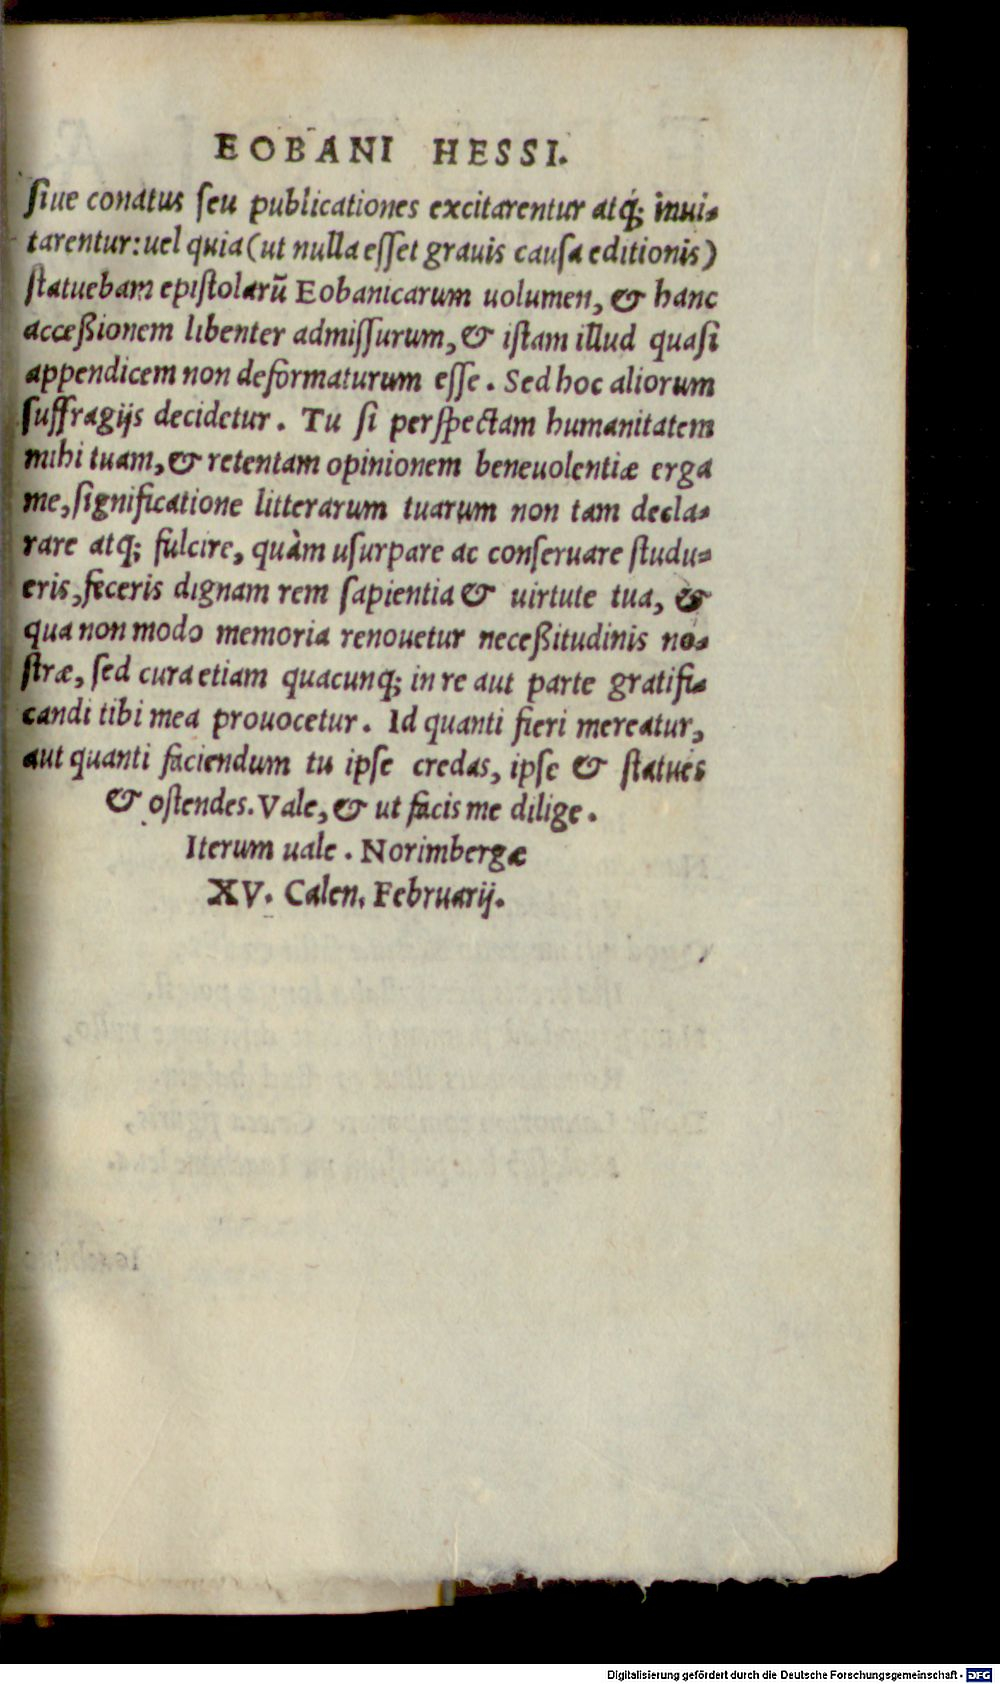 EOBANI HESSI.
ſiue conatus ſeu publicationes excitarentur atq́; inui-
tarentur: uel quia (ut nulla eſſet grauis cauſa editionis)
ſtatuebam epiſtolarū Eobanicarum uolumen, & hanc
acceßionem libenter admiſſurum, & iſtam illud quaſi
appendicem non deformaturum eſſe. Sed hoc aliorum
ſuffragijs decidetur. Tu ſi perſpectam humanitatem
mihi tuam, & retentam opinionem beneuolentiæ erga
me, ſignificatione litterarum tuarum non tam decla-
rare atq; fulcire, quàm uſurpare ac conſeruare ſtudu-
eris, feceris dignam rem ſapientia & uirtute tua, &
qua non modo memoria renouetur neceßitudinis no-
ſtræ, ſed cura etiam quacunq; in re aut parte gratifi-
candi tibi mea prouocetur. Id quanti fieri mereatur,
aut quanti faciendum tu ipſe credas, ipſe & ſtatues
& oſtendes. Vale, & ut facis me dilige.
Iterum uale. Norimbergæ
XV. Calen. Februarij.
Digitalisierung gefördert durch die Deutsche Forschungsgemeinschaft - DFG